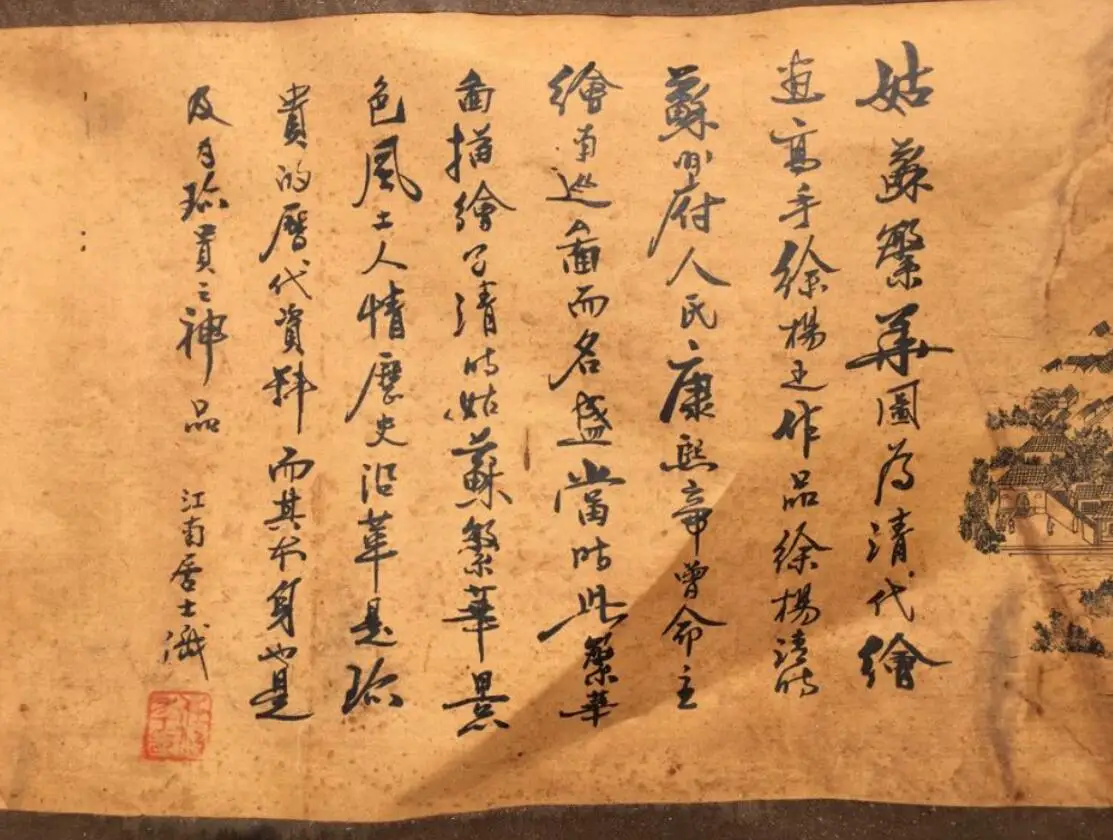 姑蘇繁華圖為清代繪
畫高手徐楊之作品徐楊清时
蘇州府人民康熙帝曾命主
繪南巡畵而名盛當时此繁華
畵描繪了清时姑蘇繁華景
色風土人情歷史沿革是珎
貴的曆代資料而其本身也是
及为珎貴之神品
江南居士識